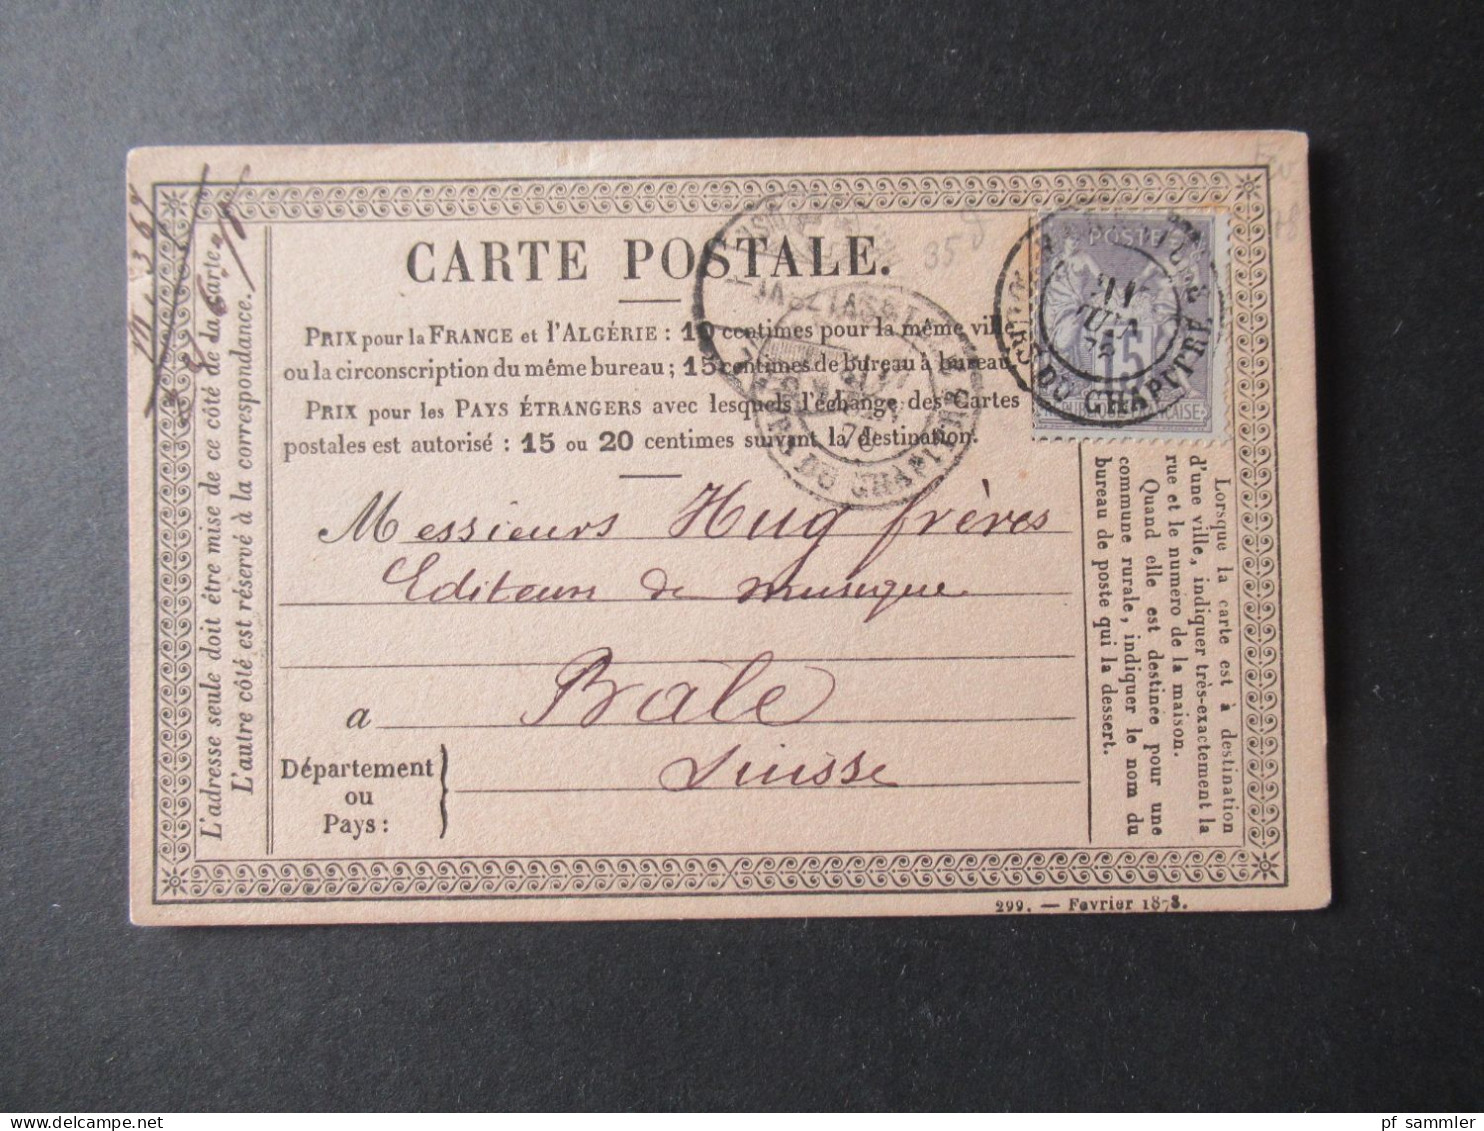 CARTE POSTALE.
PRIX pour la FRANCE et l'ALGÉRIE : 10 centimes pour la même ville
ou la circonscription du même bureau ; 15 centimes de bureau à bureau.
PRIX pour les PAYS ÉTRANGERS avec lesquels l'échange des Cartes
postales est autorisé : 15 ou 20 centimes suivant la destination.
Messieurs Hug frères
Editeurs de musique
a Bale
Suisse
Département
ou
Pays :
L'adresse seule doit être mise de ce côté de la carte.
L'autre côté est réservé à la correspondance.
Lorsque la carte est à destination
d'une ville, indiquer très-exactement la
rue et le numero de la maison.
Quand elle est destinée pour une
commune rurale, indiquer le nom du
bureau de poste qui la dessert.
299. — Fevrier 1873.
358
POSTES
15
11
DU CHAPITRE
DU CHAPITRE
pf_sammler